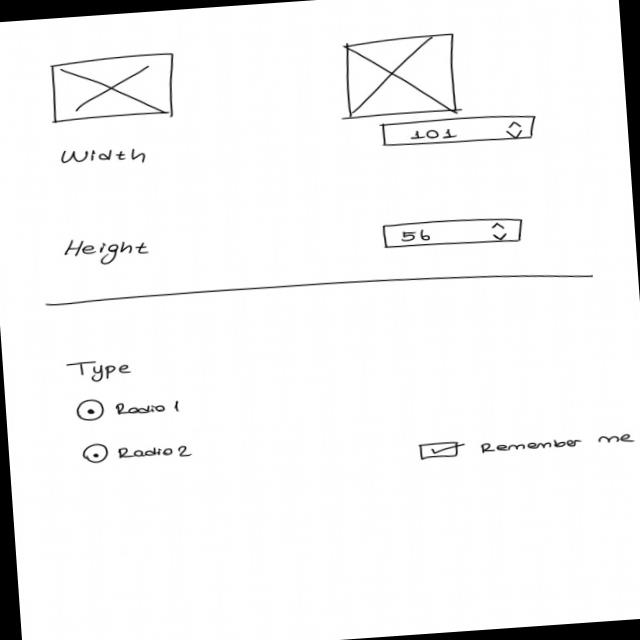 101
Width
56
Height
Type
Radio 1
Radio 2
Remember me